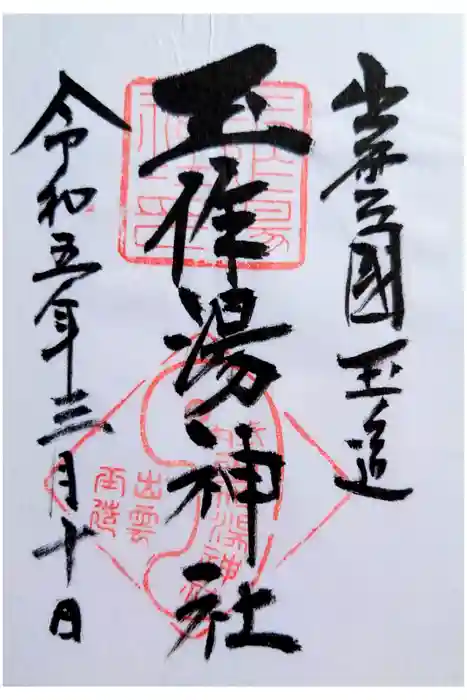 出雲國玉造
玉作湯神社
令和五年三月十日
出雲
玉造